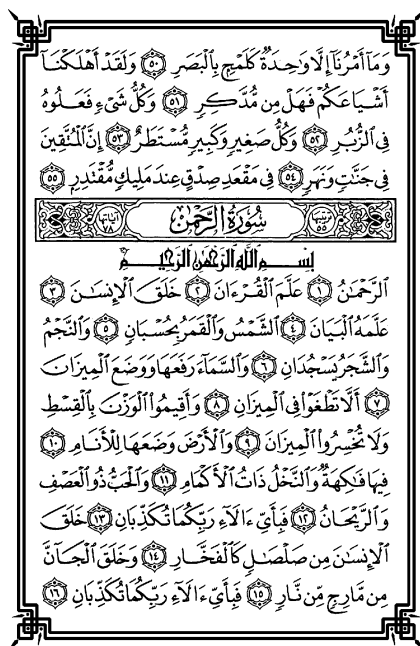 وَمَآ أَمْرُنَآ إِلَّا وَٰحِدَةٌ كَلَمْحٍۭ بِٱلْبَصَرِ ۝٥٠ وَلَقَدْ أَهْلَكْنَآ
أَشْيَاعَكُمْ فَهَلْ مِن مُّدَّكِرٍ ۝٥١ وَكُلُّ شَىْءٍ فَعَلُوهُ
فِى ٱلزُّبُرِ ۝٥٢ وَكُلُّ صَغِيرٍ وَكَبِيرٍ مُّسْتَطَرٌ ۝٥٣ إِنَّ ٱلْمُتَّقِينَ
فِى جَنَّٰتٍ وَنَهَرٍ ۝٥٤ فِى مَقْعَدِ صِدْقٍ عِندَ مَلِيكٍ مُّقْتَدِرٍۭ ۝٥٥
ترتيبها ٥٥ سُورَةُ الرَّحْمَٰن آياتها ٧٨
بِسْمِ ٱللَّهِ ٱلرَّحْمَٰنِ ٱلرَّحِيمِ
ٱلرَّحْمَٰنُ ۝١ عَلَّمَ ٱلْقُرْءَانَ ۝٢ خَلَقَ ٱلْإِنسَٰنَ ۝٣
عَلَّمَهُ ٱلْبَيَانَ ۝٤ ٱلشَّمْسُ وَٱلْقَمَرُ بِحُسْبَانٍ ۝٥ وَٱلنَّجْمُ
وَٱلشَّجَرُ يَسْجُدَانِ ۝٦ وَٱلسَّمَآءَ رَفَعَهَا وَوَضَعَ ٱلْمِيزَانَ
۝٧ أَلَّا تَطْغَوْا۟ فِى ٱلْمِيزَانِ ۝٨ وَأَقِيمُوا۟ ٱلْوَزْنَ بِٱلْقِسْطِ
وَلَا تُخْسِرُوا۟ ٱلْمِيزَانَ ۝٩ وَٱلْأَرْضَ وَضَعَهَا لِلْأَنَامِ ۝١٠
فِيهَا فَٰكِهَةٌ وَٱلنَّخْلُ ذَاتُ ٱلْأَكْمَامِ ۝١١ وَٱلْحَبُّ ذُو ٱلْعَصْفِ
وَٱلرَّيْحَانُ ۝١٢ فَبِأَىِّ ءَالَآءِ رَبِّكُمَا تُكَذِّبَانِ ۝١٣ خَلَقَ
ٱلْإِنسَٰنَ مِن صَلْصَٰلٍ كَٱلْفَخَّارِ ۝١٤ وَخَلَقَ ٱلْجَآنَّ
مِن مَّارِجٍ مِّن نَّارٍ ۝١٥ فَبِأَىِّ ءَالَآءِ رَبِّكُمَا تُكَذِّبَانِ ۝١٦